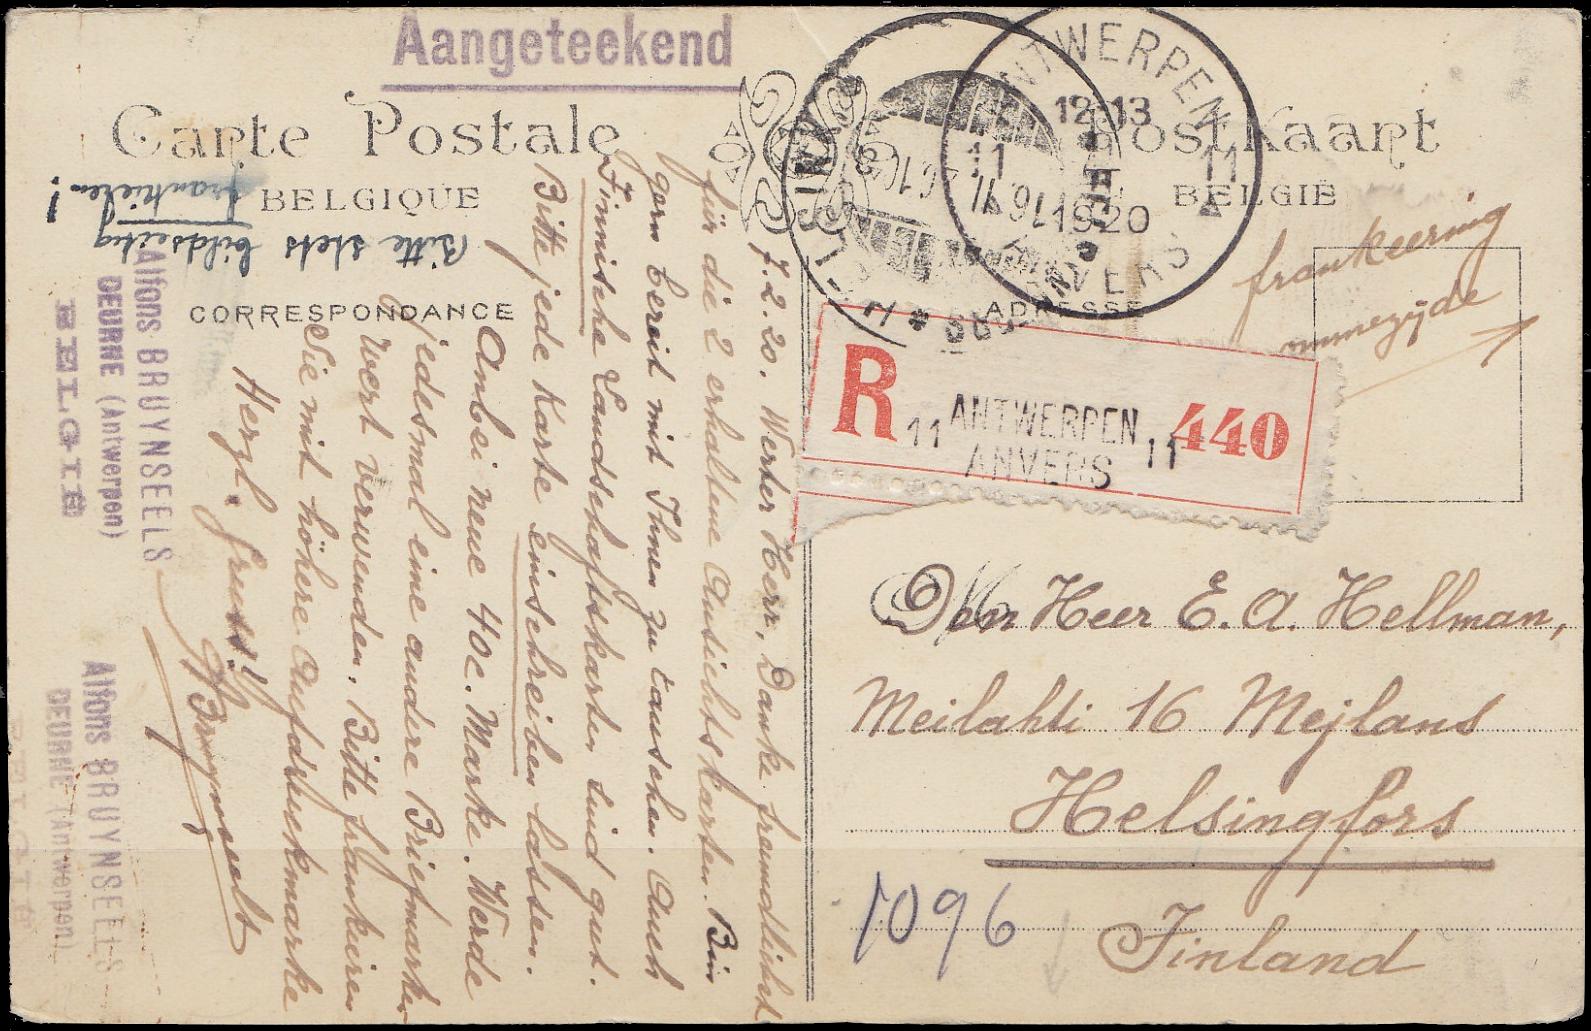 Aangeteekend
Carte Postale
Postkaart
BELGIQUE
BELGIË
CORRESPONDANCE
ADRESSE
ANTWERPEN
12-13
11 11
1920
ANVERS
frankeering
ommezijde
R
11 ANTWERPEN 11
ANVERS
440
Den Heer E. A. Hellman,
Meilahti 16 Mejlans
Helsingfors
Finland
1096
7.2.20. Werter Herr, Danke freundlichst
für die 2 erhaltene Ansichtskarten. Bin
gern bereit mit Ihnen zu tauschen. Auch
Finnische Landschaftskarten sind gut.
Bitte jede Karte einschreiben lassen.
Anbei neue 40c. Marke. Werde
jedesmal eine andere Briefmarke
Wert verwenden. Bitte frankieren
Sie mit höhere Aufdruckmarke
Herzl. Gruss!
Bitte stets bildseitig
frankieren!
Alfons BRUYNSEELS
DEURNE (Antwerpen)
BELGIE
Alfons BRUYNSEELS
DEURNE (Antwerpen)
BELGIE